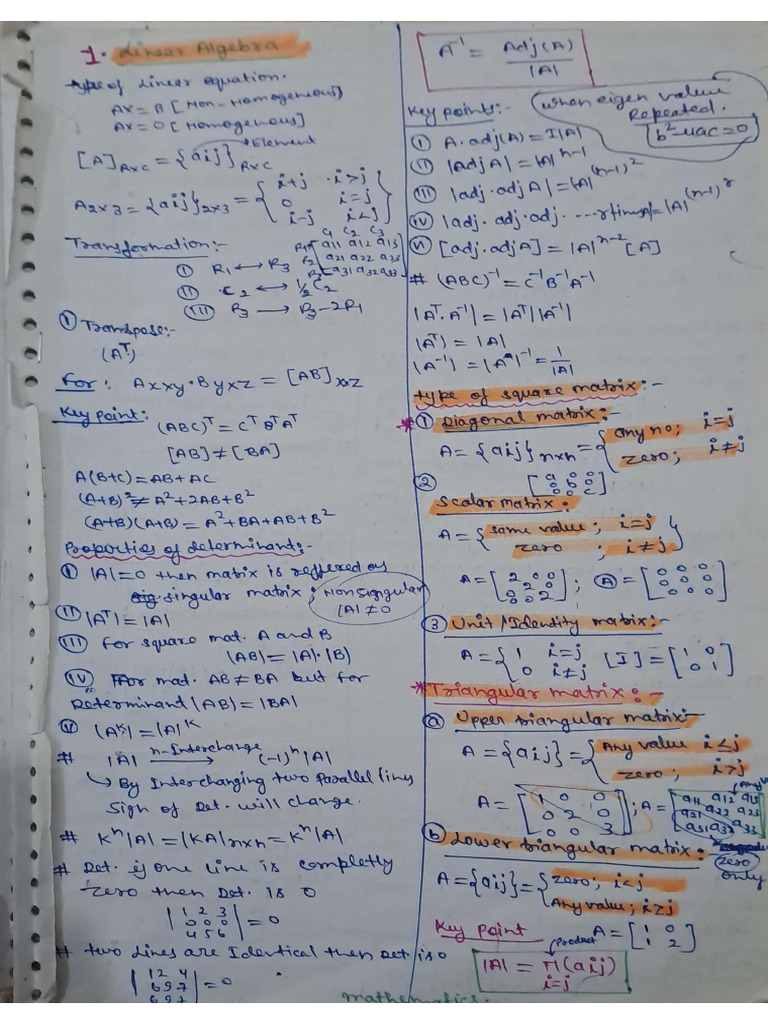 1. Linear Algebra
type of Linear equation.
AX = B [Non-Homogeneous]
AX = 0 [Homogenous]
Element
[A]R×C = {aij}R×C
A2×3 = {aij}2×3 = { i+j i>j
0 i=j
i-j i<j }
C1 C2 C3
Transformation:-
R1 [a11 a12 a13
R2 a21 a22 a23
R3 a31 a32 a33]
(I) R1 ⟷ R3
(II) C2 ⟷ 1/2 C2
(III) R3 → R3-2R1
(1) Transpose:-
(A^T)
For: Axxy · Byxz = [AB]xxz
Key point:
(ABC)^T = C^T B^T A^T
[AB] ≠ [BA]
A(B+C) = AB+AC
(A+B)^2 ≠ A^2+2AB+B^2
(A+B)(A+B) = A^2+BA+AB+B^2
Properties of determinant:-
(I) |A|=0 then matrix is reffered as
singular matrix; Non Singular
|A| ≠ 0
(II) |A^T| = |A|
(III) For square mat. A and B
|AB| = |A|·|B|
(IV) For mat. AB ≠ BA but for
Determinant |AB| = |BA|
(V) |A^K| = |A|^K
# |A| n-Interchange → (-1)^n |A|
↳ By Interchanging two parallel lines
Sign of Det. will change.
# K^n|A| = |KA|n×n = K^n|A|
# Det. if one line is completly
zero then Det. is 0
|1 2 3
0 0 0
4 5 6| = 0
# two Lines are Identical then Det is 0
|1 2 4
6 9 7
6 9 7| = 0
A^-1 = Adj(A)/|A|
Key points:-
when eigen value
Repeated.
b^2-4ac=0
(I) A·adj(A) = I|A|
(II) |Adj A| = |A|^n-1
(III) |adj·adj A| = |A|^(n-1)^2
(IV) |adj·adj·adj· ---- r times A| = |A|^(n-1)^r
(V) [adj·adj A] = |A|^n-2 [A]
# (ABC)^-1 = C^-1 B^-1 A^-1
|A^T·A^-1| = |A^T| |A^-1|
|A^T| = |A|
|A^-1| = |A|^-1 = 1/|A|
type of square matrix:-
* (1) Diagonal matrix:-
A = {aij}n×n = { any no; i=j
zero; i≠j
[a 0 0
0 b 0
0 0 c]
(2)
Scalar matrix:
A = { same value; i=j
zero ; i≠j }
A = [2 0 0
0 2 0
0 0 2] ; (A) = [0 0 0
0 0 0
0 0 0]
(3) Unit/Identity matrix:-
A = { 1 i=j
0 i≠j [I] = [1 0
0 1]
*Triangular matrix:-
(a) Upper triangular matrix:-
A = {aij} = { Any value i≤j
zero; i>j
A = [1 0 0
0 2 0
0 0 3] ; A = [a11 a12 a13
a21 a22 a23
a31 a32 a33]
zero
only
(b) Lower triangular matrix:-
A = {aij} = { zero; i<j
Any value; i≥j
Key point
A = [1 0
1 2]
Product
|A| = Π(aij)
i=j
mathematics.